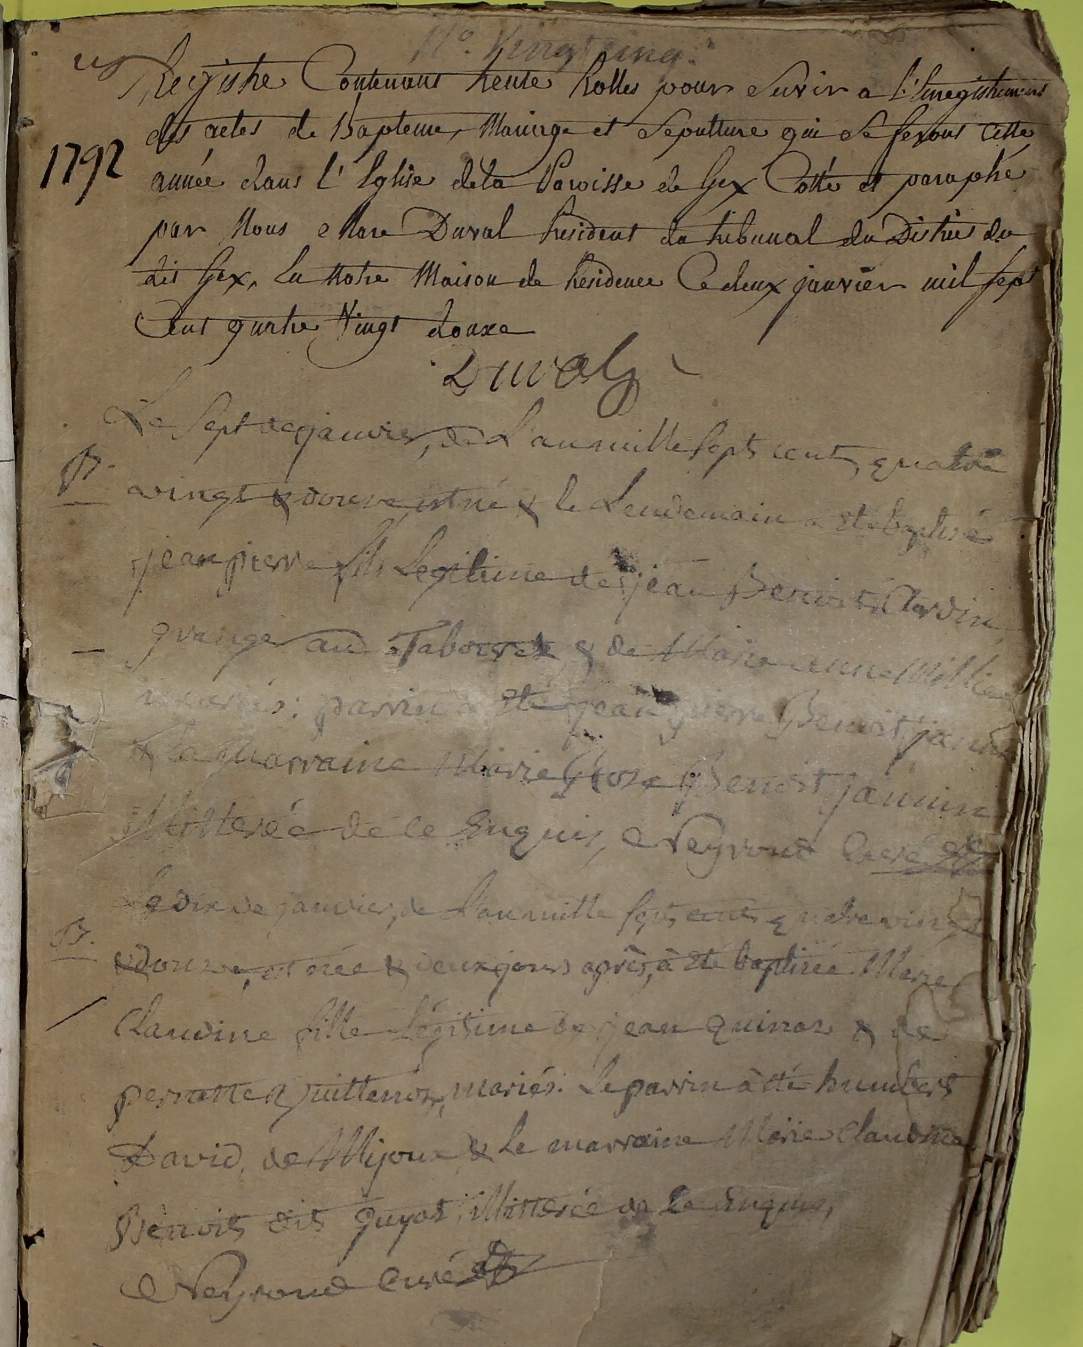 N.° Vingt cinq.
Registre Contenant trente Rolles pour Servir a l'Enregistrement
des actes de Bapteme, Mariage et Sepulture qui se feront cette
1792
année dans L'Eglise dela Paroisse de Gex Cotté et paraphé
par Nous Marc Duval President du tribunal du District du
dit Gex, En Notre Maison de Residence Ce deux janvier mil sept
Cent quatre Vingt douze
Duval
Le Sept de janvier, de L'an mille Sept cent, quatre
B.
vingt & douze est né & le Lendemain a été baptisé
jean pierre fils Legitime de jean Benoit
granger au & de Marie anne
mariés: parrin a été jean pierre Benoit jannin
& la Marraine Marie Rose Benoit jannin
de Neyroud Curé
Le dix de janvier, de L'an mille sept cent quatre vingt
B.
& douze, est née & deux jours après, à été baptisée Marie
Claudine fille Légitime de jean quinoz & de
perratte mariés. Le parrin à été humbert
David, de Mijoux & Le marraine Marie Claudine
Benoit dit guyot de
Neyroud Curé